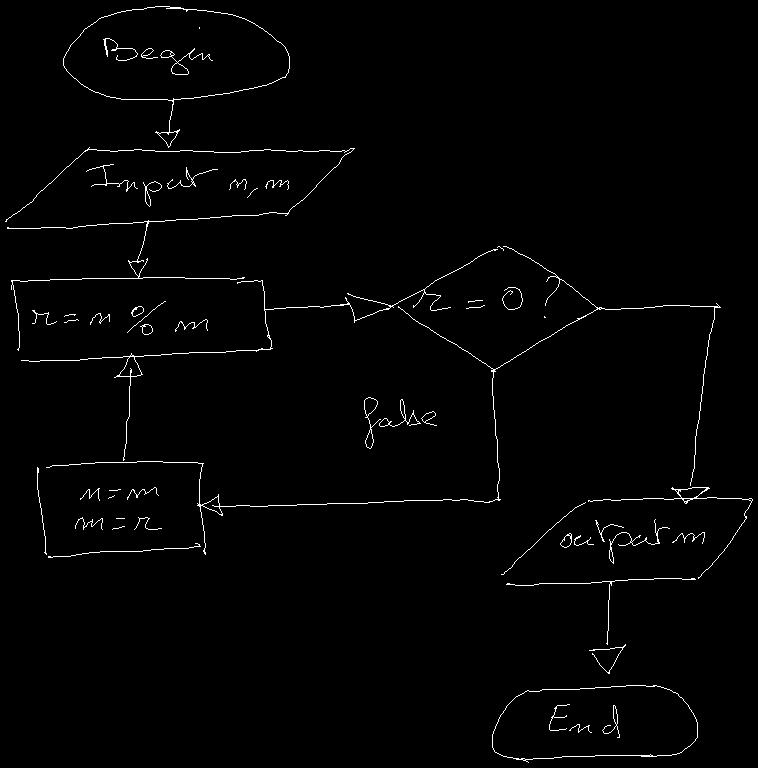 Begin
Input n, m
r = n % m
r = 0 ?
false
n = m
m = r
output m
End